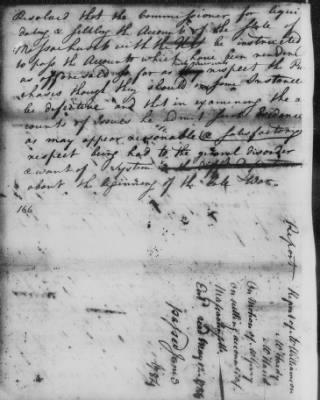 Resolved that the Commissioner for liqui
dating & settling the Accounts of the State
with the be instructed
to pass the Accounts which have been rendered
as aforesaid so far as respect the Pur
chases though they should in some Instances
be defective and that in examining the ac
counts of Issues he admit such Evidence
as may appear reasonable & satisfactory
respect being had to the general disorder
& want of System
about the beginning of the late War.
166
Report
Report of Mr Williamson
Mr Ward
On Motion of
On settling accounts of
Massachusetts
Entd read May 12 1784
passed June 3
1784